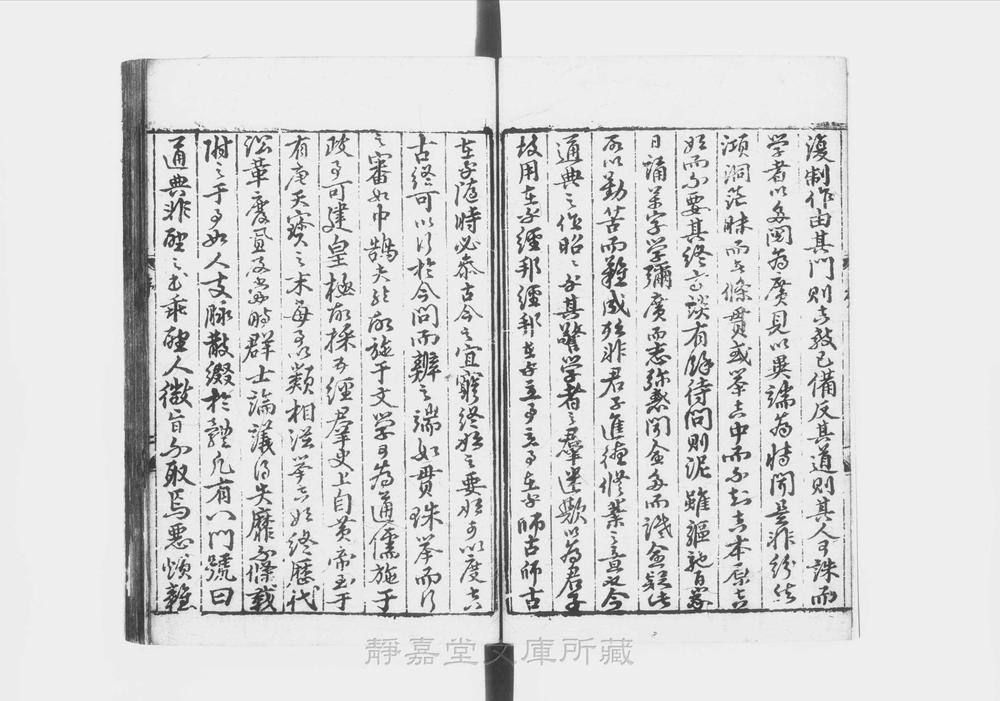 復制作由其門則其教已備反其道則其人可誅而
學者以多閱為廣見以異端為博聞是非紛然
澒洞茫昧而無條貫或舉其中而不知其本原其
始而不要其終高談有餘待問則泥雖驅馳百家
日誦萬字學彌廣而志弥惑聞愈多而識愈疑此
所以勤苦而難成殆非君子進德修業之意也今
通典之作昭々乎其警學者之羣迷歟以為君子
故用在乎經邦經邦在乎立事立事在乎師古師古
在乎隨時必参古今之宜窮終始之要始可以度其
古終可以行於今問而辨之端如貫珠舉而行
之審如中鵠夫然故施于文學可為通儒施于
政事可建皇極故採五經羣史上自黄帝至于
有唐天寶之末每事以類相從舉其始終歷代
沿革廢置及當時群士論議得失靡不條載
附之于事如人支脉散綴於體凡有八門號曰
通典非聖之書乖聖人微旨不取焉惡煩雜
靜嘉堂文庫所藏